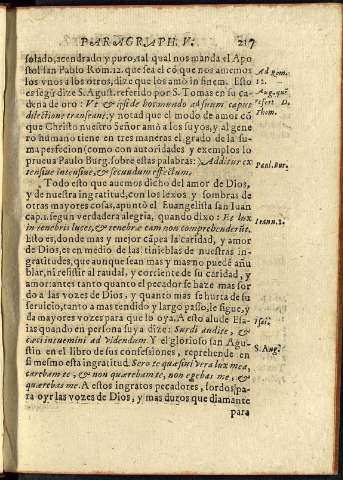 PARAGRAPH. V. 217
solado, acendrado y puro, tal qual nos manda el Apo
stol san Pablo Rom. 12. que sea el cõ que nos amemos
los vnos a los otros, dize que los amò in finem. Esto
es segũ dize S. Agust. referido por S. Tomas en su ca
dena de oro: Vt & ipsi de hoc mundo ad suum caput
dilectione transeant; y notad que el modo de amor cõ
que Christo nuestro Señor amò a los suyos, y al gene
ro humano tiene en tres maneras el grado de la su-
ma perfecion (como con autoridades y exemplos lo
prueua Paulo Burg. sobre estas palabras) Additur ex
tensiue intensiue, & secundum effectum.
Todo esto que auemos dicho del amor de Dios,
y de nuestra ingratitud, con los lexos y sombras de
otras mayores cosas, apuntò el Euangelista san Iuan
cap. 1. segun verdadera alegria, quando dixo: Et lux
in tenebris lucet, & tenebræ eam non comprehenderũt.
Esto es, donde mas y mejor cãpea la caridad, y amor
de Dios, es en medio de las tinieblas de nuestras in-
gratitudes, que aunque sean mas y mas no puedẽ añu
blar, ni resistir al raudal, y corriente de su caridad, y
amor: antes tanto quanto el pecador se haze mas sor
do a las vozes de Dios, y quanto mas se hurta de su
seruicio, tanto a mas tendido y largo passo, le sigue, y
da mayores vozes para que lo oya. A esto alude Esa-
ias quando en persona suya dize: Surdi audite, &
cæci intuemini ad videndum. Y el glorioso san Agu-
stin en el libro de sus confesiones, reprehende en
si mesmo esta ingratitud. Sero te quæsiui vera lux mea,
carebam te, & non quærebam te, non egebas me, &
quærebas me. A estos ingratos pecadores, sordos para
oyr las vozes de Dios, y mas duros que diamante
para
Ad Rom.
12.
Aug. quẽ
refert D.
Thom.
Paul. Bur.
Ioann. 1.
Isai.
S. Aug.